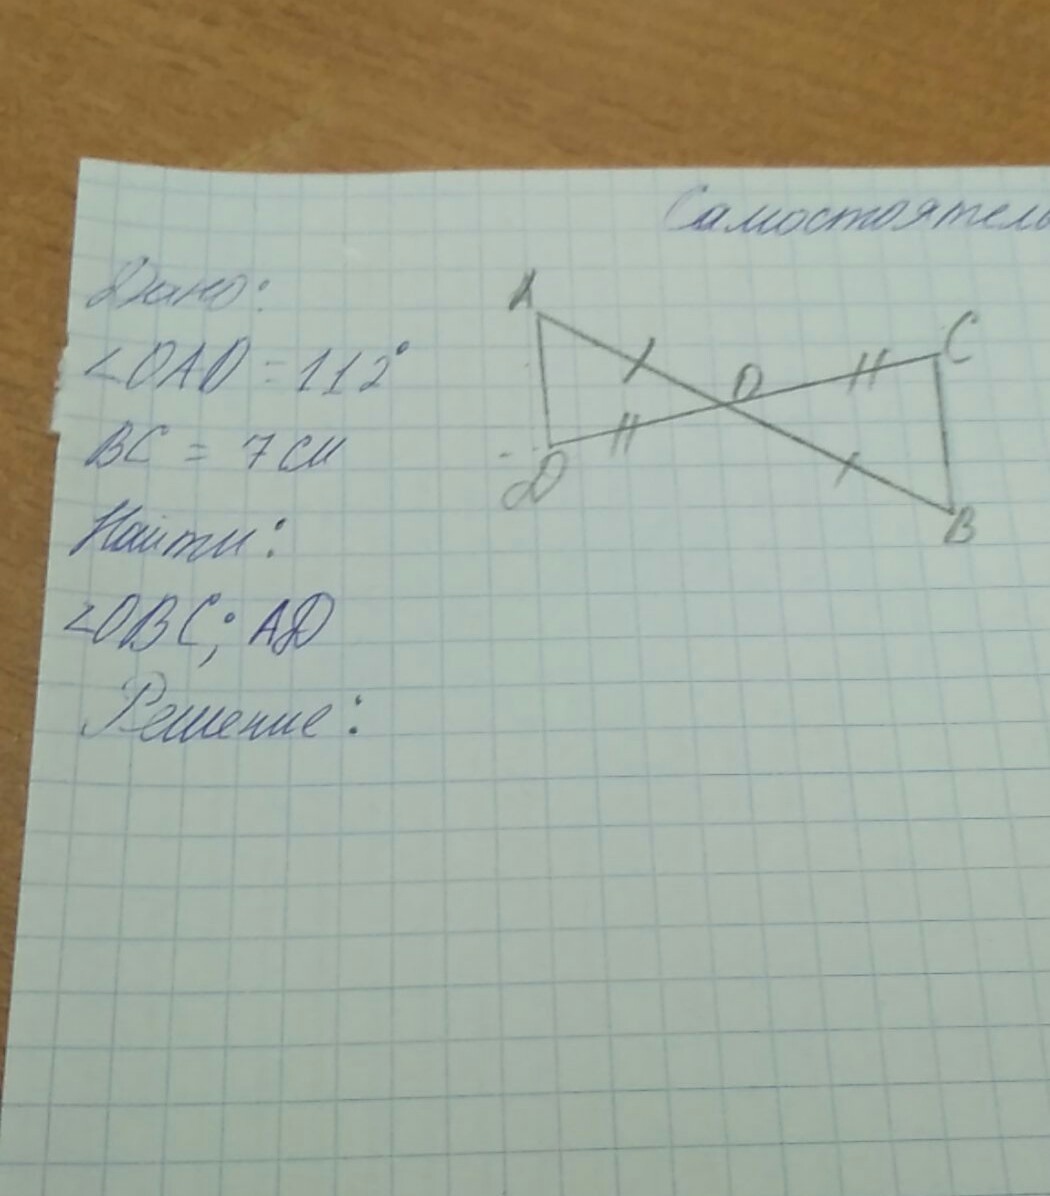 Самостоятель
Дано:
∠OAD = 112°
BC = 7 см
Найти:
∠OBC; AD
Решение:
A
O
C
D
B